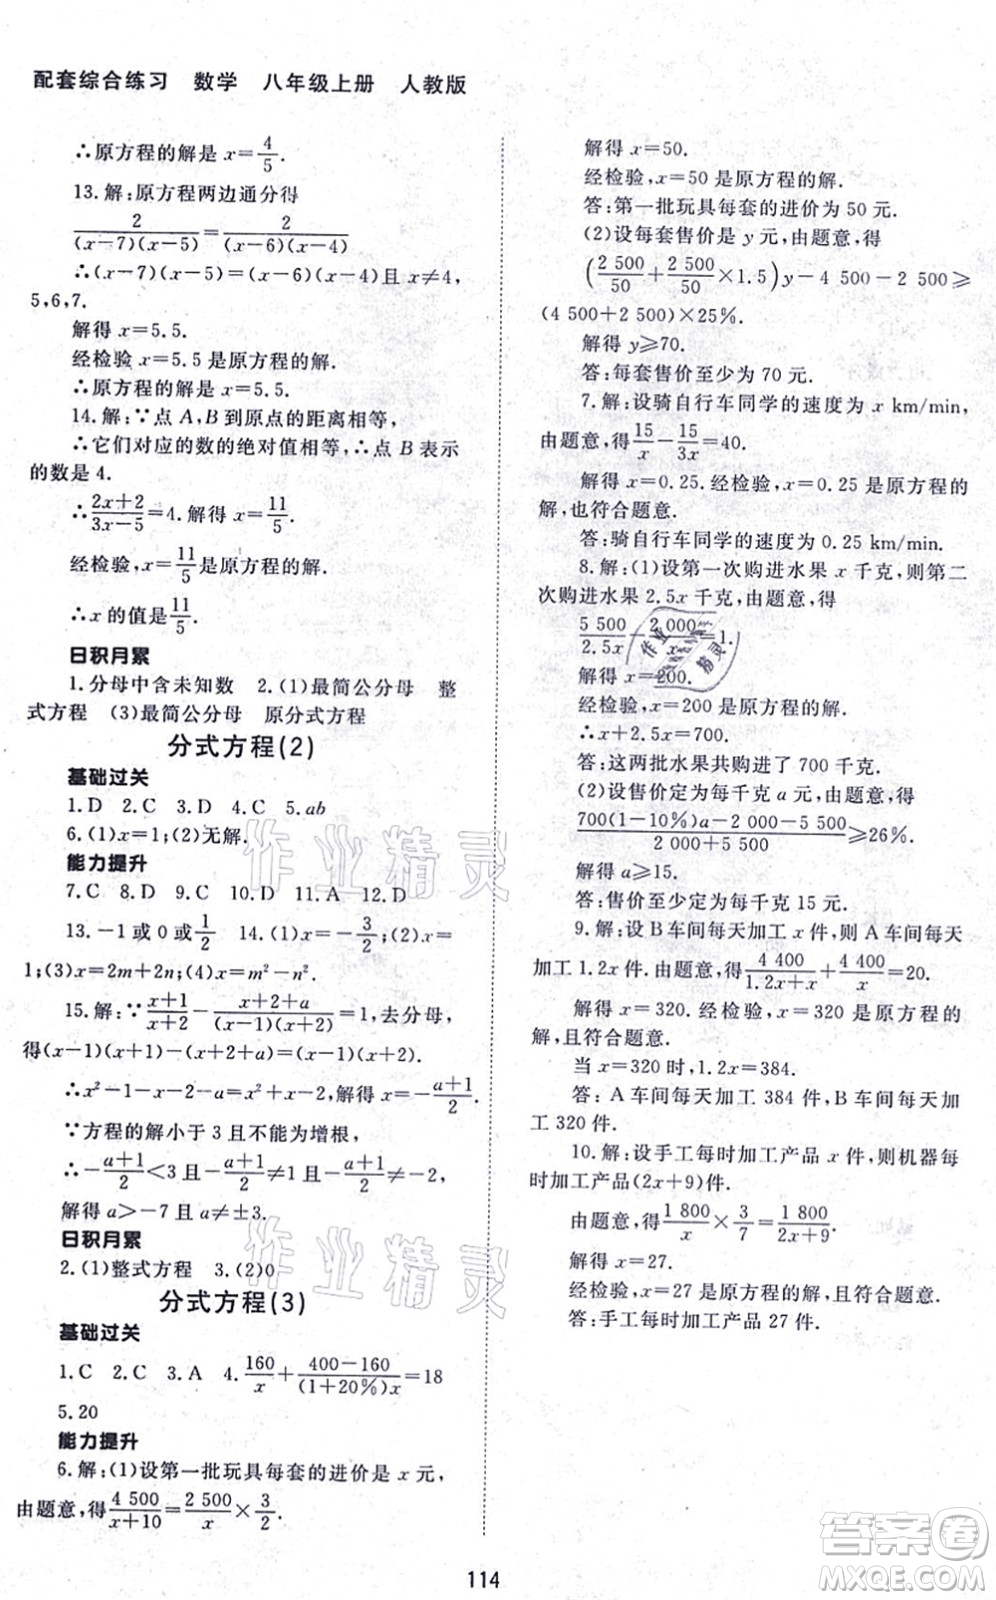 配套综合练习 数学 八年级上册 人教版
∴原方程的解是 x=4/5.
13.解:原方程两边通分得
2/((x-7)(x-5))=2/((x-6)(x-4))
∴(x-7)(x-5)=(x-6)(x-4)且 x≠4,
5,6,7.
解得 x=5.5.
经检验 x=5.5 是原方程的解.
∴原方程的解是 x=5.5.
14.解:∵点 A,B 到原点的距离相等,
∴它们对应的数的绝对值相等,∴点 B 表示
的数是 4.
∴(2x+2)/(3x-5)=4.解得 x=11/5.
经检验,x=11/5是原方程的解.
∴x 的值是11/5.
日积月累
1.分母中含未知数 2.(1)最简公分母 整
式方程 (3)最简公分母 原分式方程
分式方程(2)
基础过关
1.D 2.C 3.D 4.C 5.ab
6.(1)x=1;(2)无解.
能力提升
7.C 8.D 9.C 10.D 11.A 12.D
13.-1 或 0 或1/2 14.(1)x=-3/2;(2)x=
1;(3)x=2m+2n;(4)x=m²-n².
15.解:∵(x+1)/(x+2)-x/(x-1)=(x+2+a)/((x-1)(x+2)),去分母,
得(x-1)(x+1)-(x+2+a)=x(x+2).
∴x²-1-x-2-a=x²+2x.解得 x=-(a+1)/2.
∵方程的解小于 3 且不能为增根,
∴-(a+1)/2<3 且-(a+1)/2≠1 且-(a+1)/2≠-2,
解得 a>-7 且 a≠±3.
日积月累
2.(1)整式方程 3.(2)0
分式方程(3)
基础过关
1.C 2.C 3.A 4.160/x+(400-160)/((1+20%)x)=18
5.20
能力提升
6.解:(1)设第一批玩具每套的进价是 x 元,
由题意,得4 500/(x+10)=2 500/x×3/2.
解得 x=50.
经检验,x=50 是原方程的解.
答:第一批玩具每套的进价为 50 元.
(2)设每套售价是 y 元,由题意,得
(2 500/50+2 500/50×1.5)y-4 500-2 500≥
(4 500+2 500)×25%.
解得 y≥70.
答:每套售价至少为 70 元.
7.解:设骑自行车同学的速度为 x km/min,
由题意,得15/x-15/3x=40.
解得 x=0.25.经检验,x=0.25 是原方程的
解,也符合题意.
答:骑自行车同学的速度为 0.25 km/min.
8.解:(1)设第一次购进水果 x 千克,则第二
次购进水果 2.5x 千克,由题意,得
5 500/2.5x-2 000/x=1.
解得 x=200.
经检验,x=200 是原方程的解.
∴x+2.5x=700.
答:这两批水果共购进了 700 千克.
(2)设售价定为每千克 a 元,由题意,得
(700(1-10%)a-2 000-5 500)/(2 000+5 500)≥26%.
解得 a≥15.
答:售价至少定为每千克 15 元.
9.解:设 B 车间每天加工 x 件,则 A 车间每天
加工 1.2x 件.由题意,得4 400/1.2x+4 400/x=20.
解得 x=320. 经检验,x=320 是原方程的
解,且符合题意.
当 x=320 时,1.2x=384.
答: A 车间每天加工 384 件,B 车间每天加
工 320 件.
10.解:设手工每时加工产品 x 件,则机器每
时加工产品(2x+9)件.
由题意,得1 800/x×3/7=1 800/(2x+9).
解得 x=27.
经检验,x=27 是原方程的解,且符合题意.
答:手工每时加工产品 27 件.
114
作业精灵
作业精灵
作业精灵
答案卷
MXQE.COM